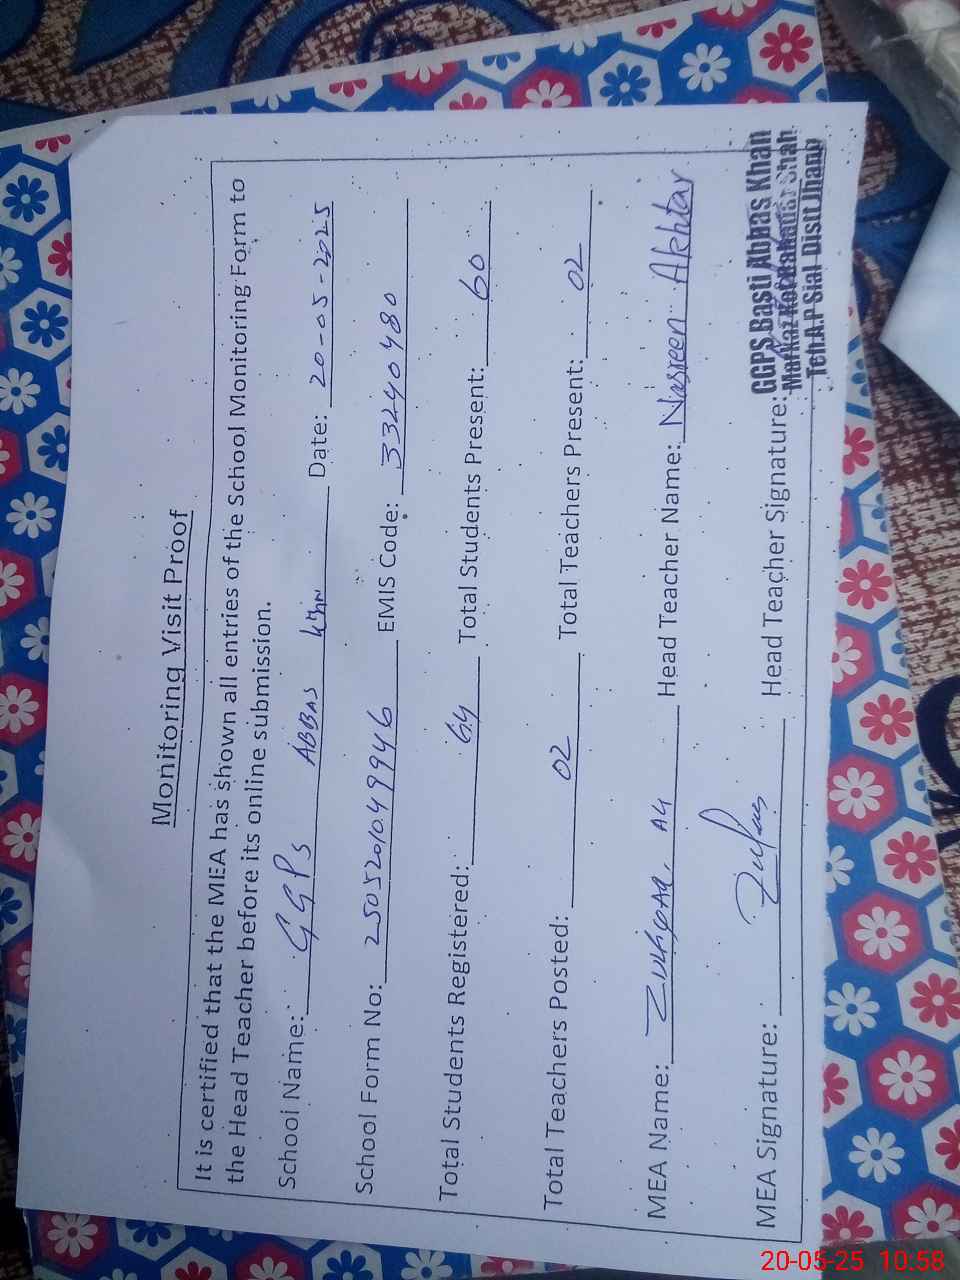 Monitoring Visit Proof
It is certified that the MEA has shown all entries of the School Monitoring Form to
the Head Teacher before its online submission.
School Name: GGPS ABBAS Khan Date: 20-05-2025
School Form No: 2505201049946 EMIS Code: 33240480
Total Students Registered: 64 Total Students Present: 60
Total Teachers Posted: 02 Total Teachers Present: 02
MEA Name: Zulfiqar Ali Head Teacher Name: Nasreen Akhtar
MEA Signature: Head Teacher Signature:
GGPS Basti Abbas Khan
Markaz Kot Bahadur Shah
Teh A.P Sial Distt Jhang
20-05-25 10:58